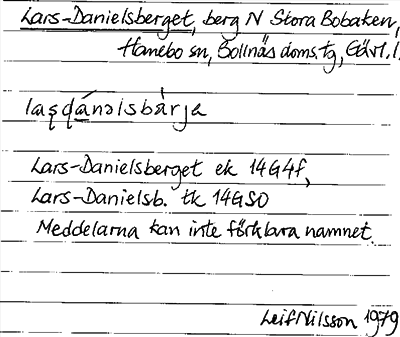 Lars-Danielsberget, berg N Stora Bobacken,
Hanebo sn, Bollnäs doms.tg, Gävl.l.
laʂɖánəlsbàrja
Lars-Danielsberget ek 14G4f,
Lars-Danielsb. tk 14GSO
Meddelarna kan inte förklara namnet.
Leif Nilsson 1979